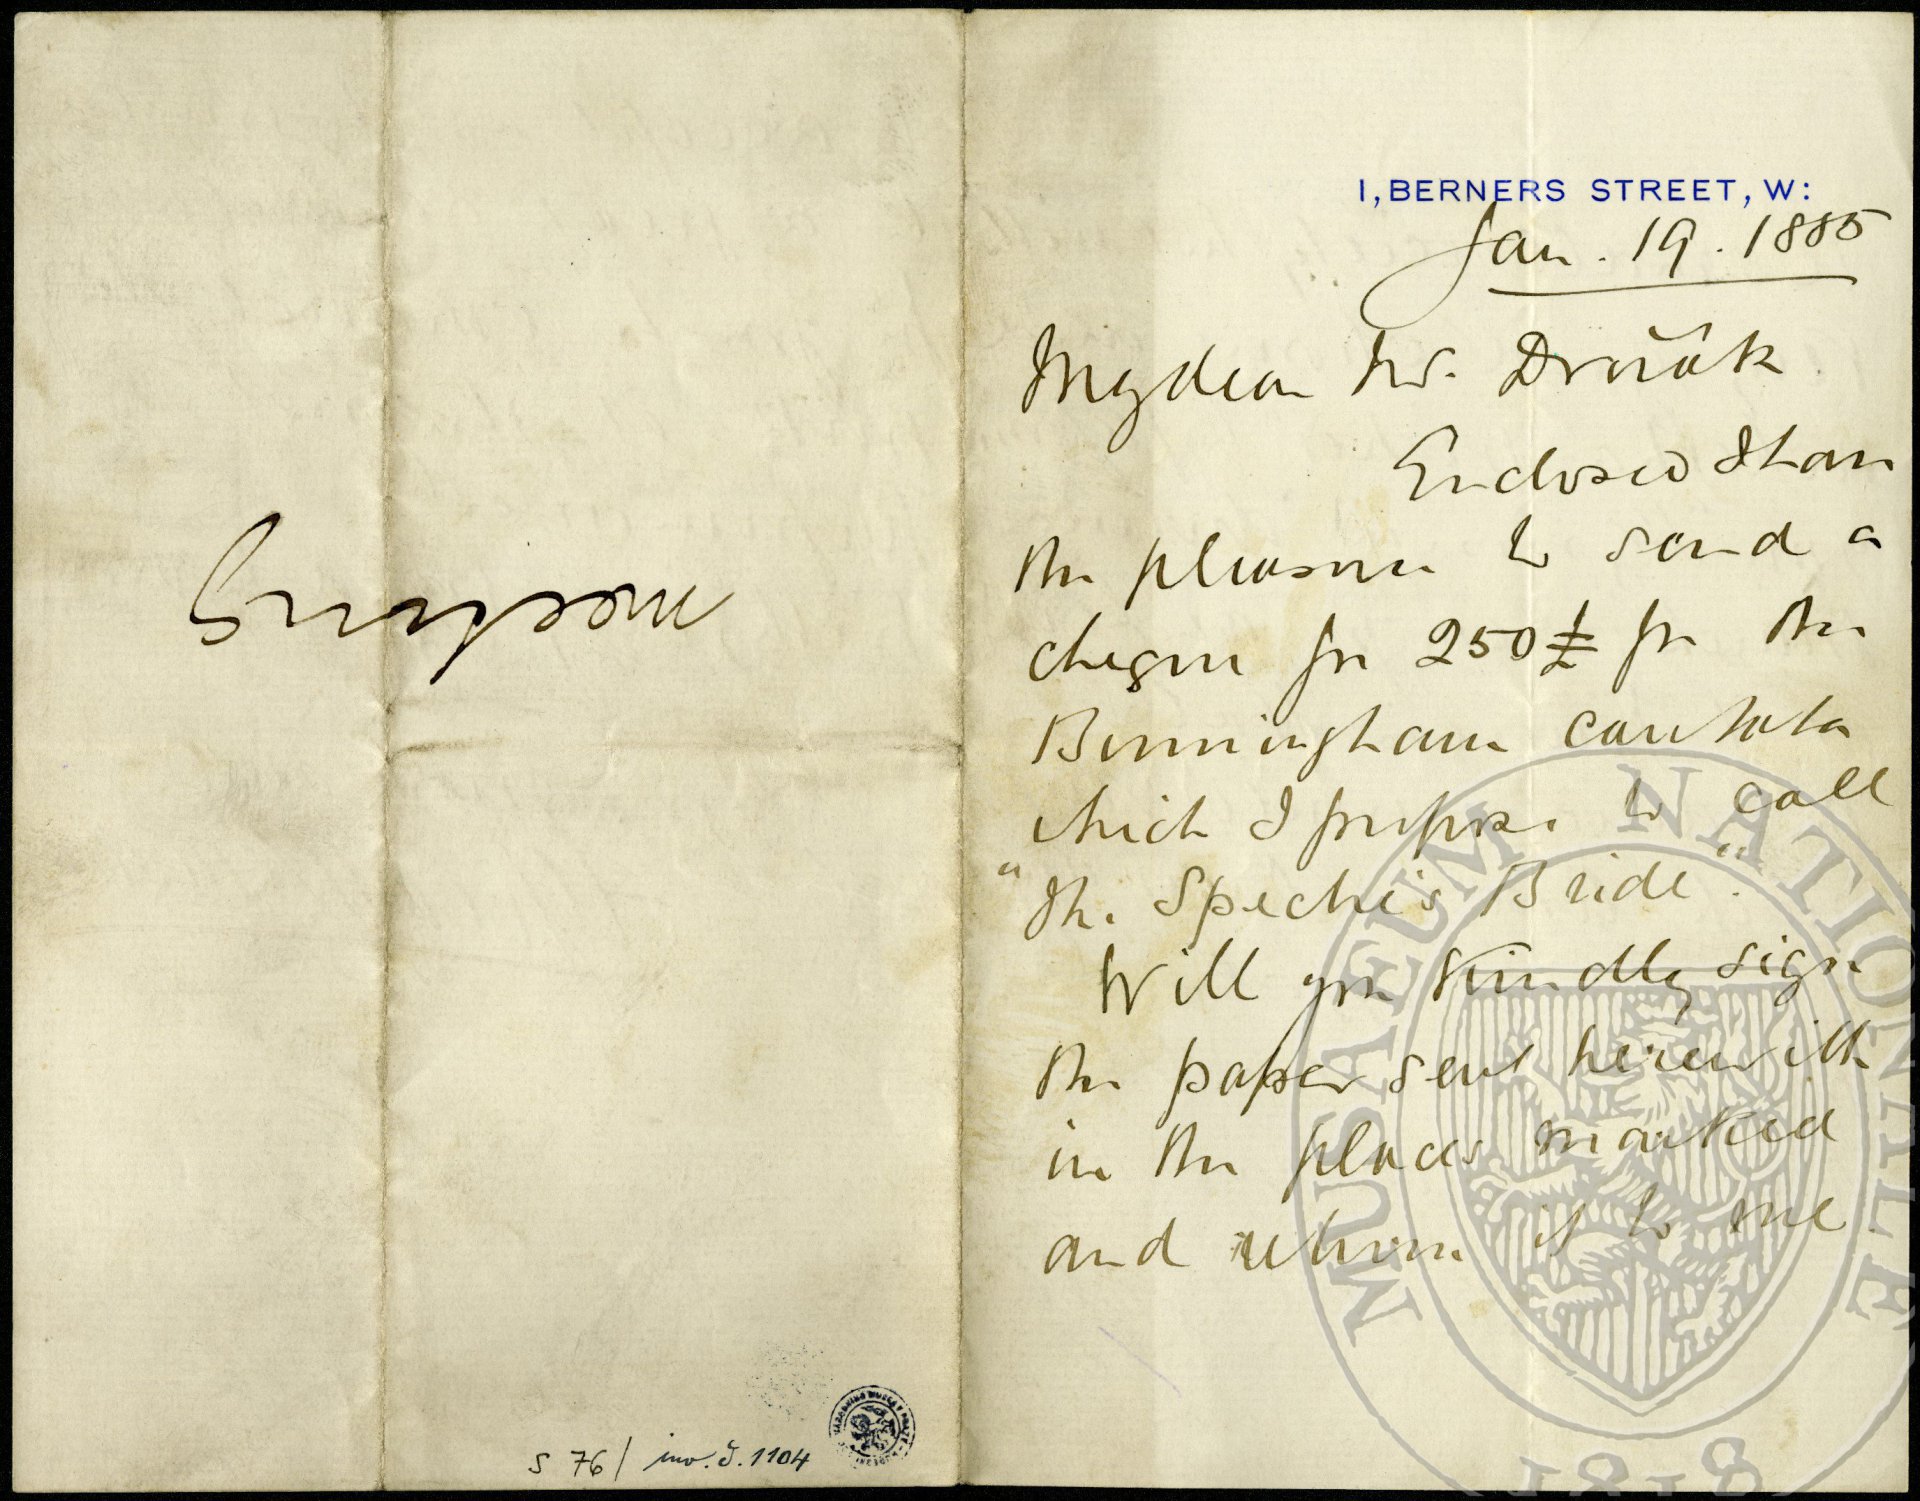 1, BERNERS STREET, W:
Jan. 19. 1885
My dear Mr. Dvořák
Enclosed I have
the pleasure to send a
cheque for 250£ for the
Birmingham cantata
which I propose to call
"The Spectre's Bride".
Will you kindly sign
the paper sent herewith
in the places marked
and return it to me
S 76 / inv. č. 1104
MUSAEUM NATIONALE
1818